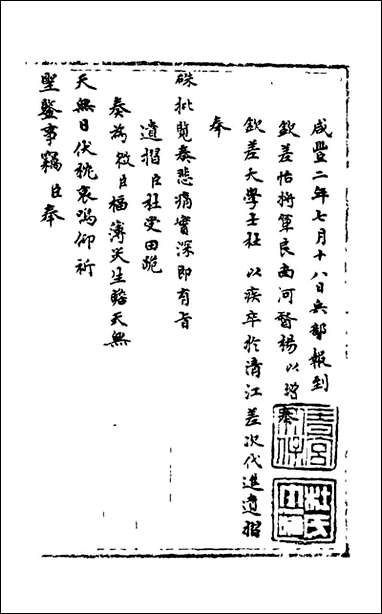 咸豐二年七月十八日兵部報到
欽差怡將軍良南河督楊 以增奉
欽差大學士杜 以疾卒於清江差次代進遺摺
奉
硃批覽奏悲痛實深即有旨
遺摺 臣杜受田跪
奏為微臣福薄災生瞻天無
天無日伏枕哀鳴仰祈
聖鑒事竊 臣奉
宮保
杜氏